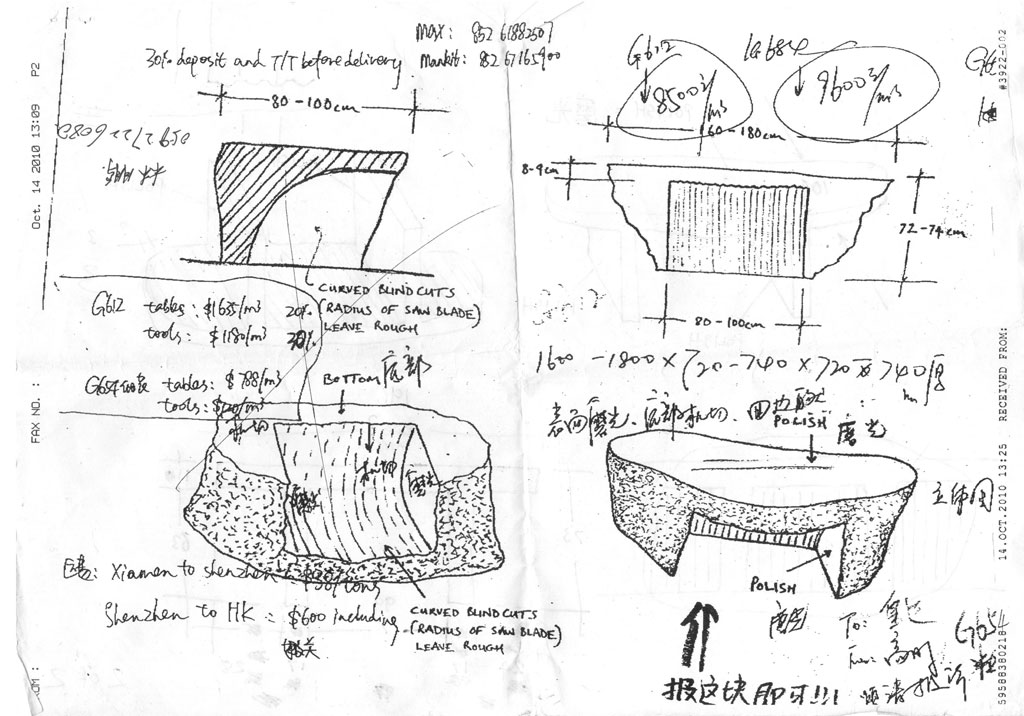 Oct. 14 2010 13:09 P2
FAX NO. :
Max: 852 61882507
30% deposit and T/T before delivery
Mankit: 852 67165900
80-100cm
CURVED BLIND CUTS
(RADIUS OF SAW BLADE)
LEAVE ROUGH
G612 tables: $1635/m³ 20%
tools: $1180/m³ 30%
G654 tables: $788/m³
tools:
BOTTOM 底部
机切
磨光
磨光
Xiamen to shenzhen
Shenzhen to HK: $600 including
报关
CURVED BLIND CUTS
(RADIUS OF SAW BLADE)
LEAVE ROUGH
G612
G684
8500元/m³
9600元/m³
160-180cm
8-9cm
72-74cm
80-100cm
1600-1800×720-740×720至740厚
表面磨光、底部机切、
POLISH
磨光
立体图
POLISH
磨光
To:
报这块即可!!!
G654
#3922-002
RECEIVED FROM:
14.OCT.2010 13:25
595883802184